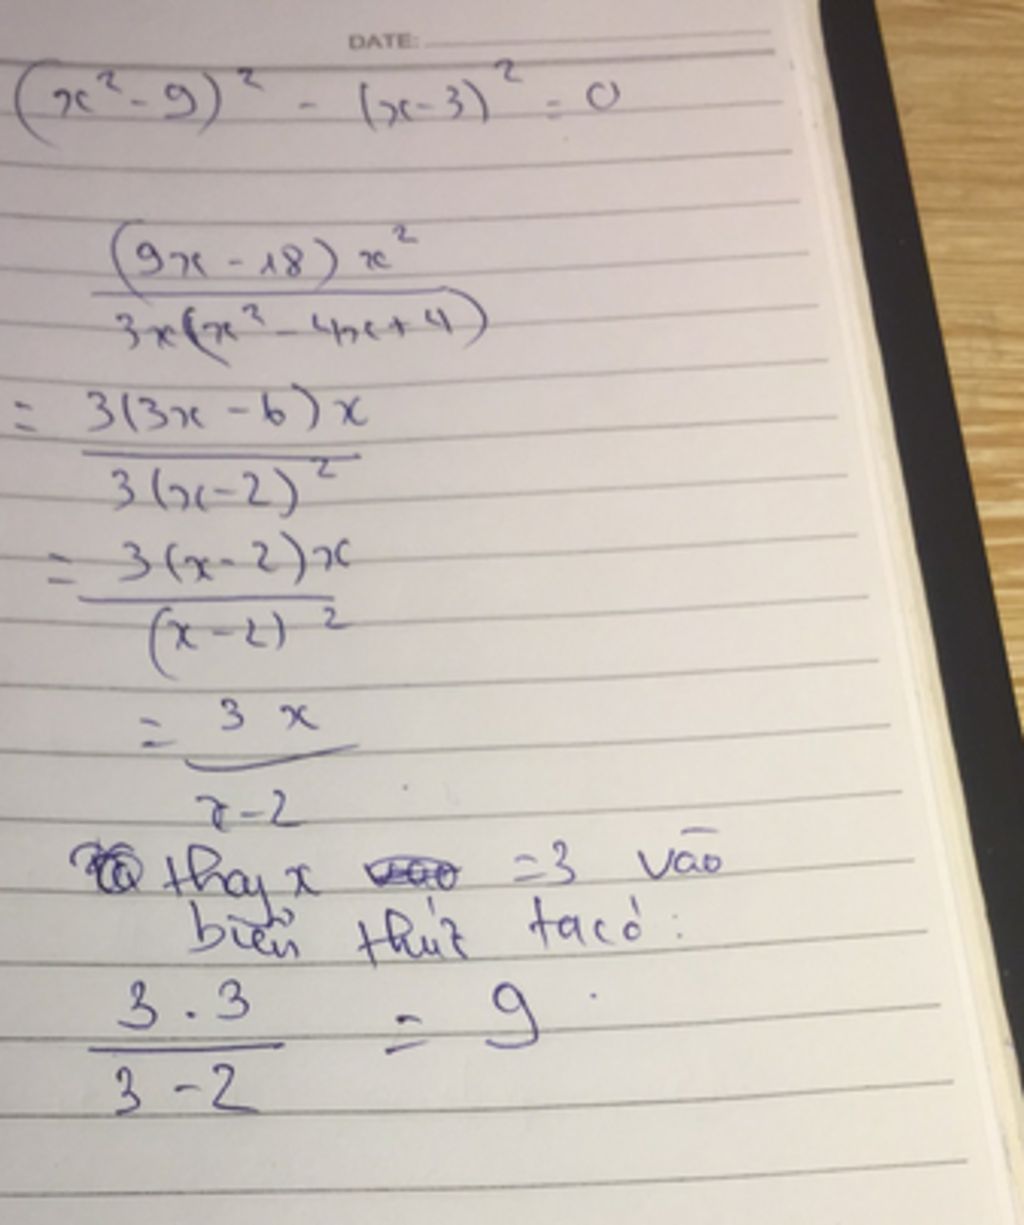 DATE:
(x² - 9)² - (x-3)² = 0
(9x - 18) x²
3x(x² - 4x + 4)
= 3(3x - 6) x
3(x-2)²
= 3(x-2)x
(x-2)²
= 3 x
x-2
thay x =3 vào
biển thức ta có:
3 . 3 = 9
3 - 2